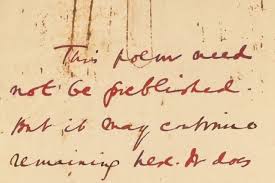 This poem need
not be published.
But it may continue
remaining here. It does